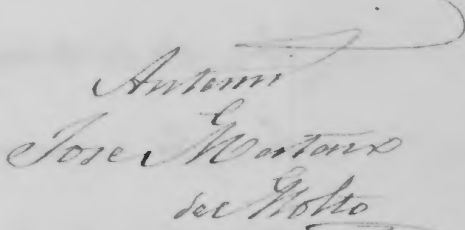 Antonio
Jose Montano
del Molto